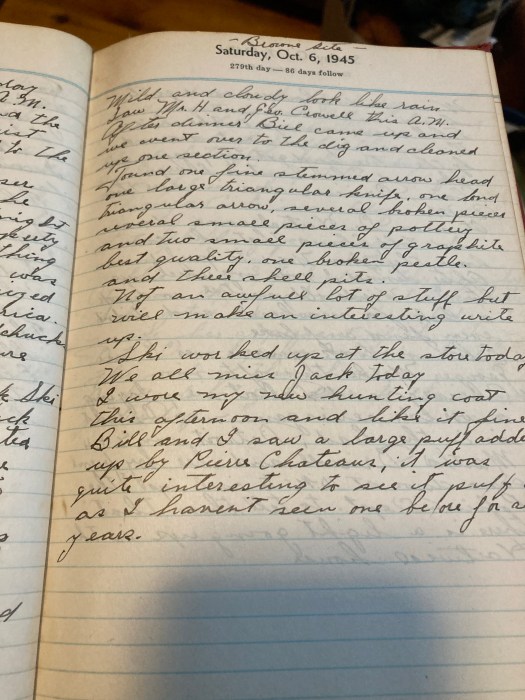 - Browne Site -
Saturday, Oct. 6, 1945
279th day — 86 days follow
Mild and cloudy look like rain
Saw Mr. H and Geo. Crowell this A.M.
After dinner Bill came up and
we went over to the dig and cleaned
up one section.
Found one fine stemmed arrow head
one large triangular knife, one
triangular arrow, several broken pieces
several small pieces of pottery
and two small pieces of graphite
best quality, one broken pestle.
and three shell pits.
Not an awfull lot of stuff but
will make an interesting write
up.
Ski worked up at the store today
We all miss Jack today
I wore my new hunting coat
this afternoon and like it fine
Bill and I saw a large puff adde
up by Pierre Chateaus, it was
quite interesting to see it puff
as I haven't seen one before for
years.
A.M.
the
to the
he
night
thing
was
ed
chuck
Ski.
ck
ted
d